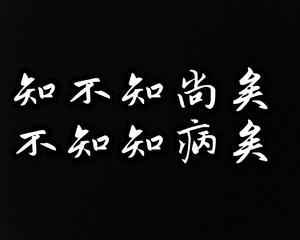 知不知尚矣
不知知病矣